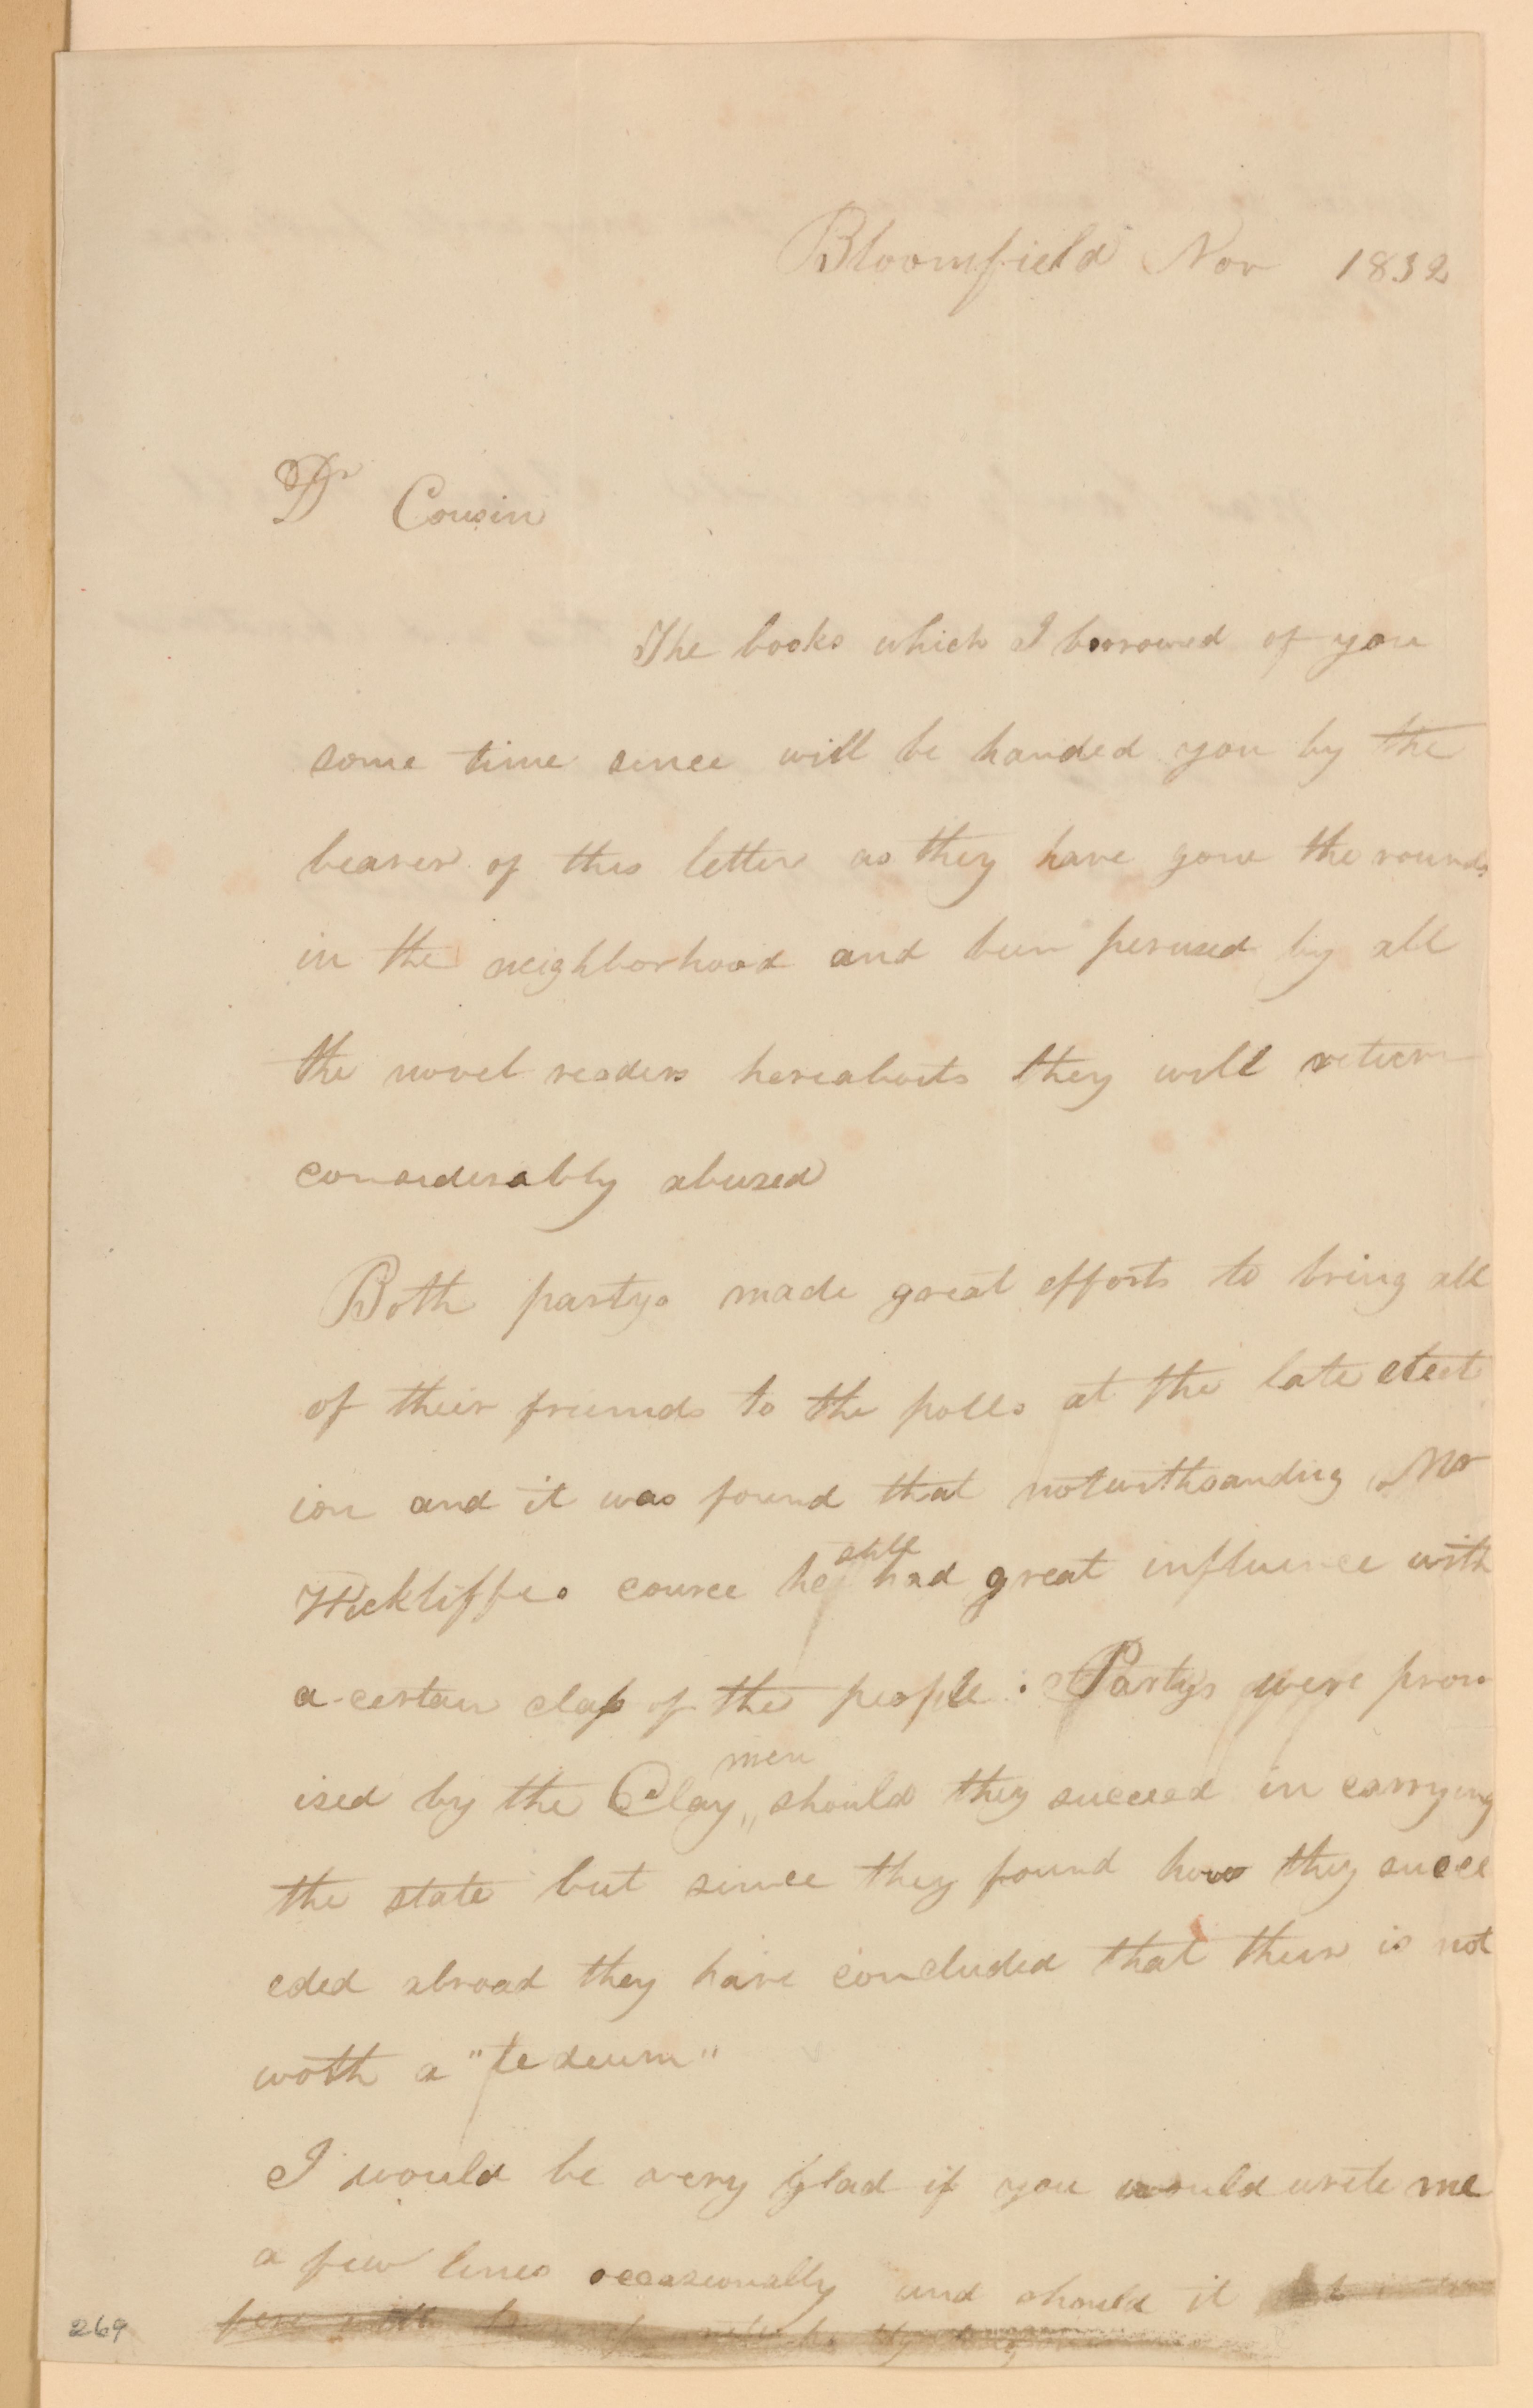 Bloomfield Nov 1832
Dr Cousin
The books which I borrowed of you
some time since will be handed you by the
bearer of this letter as they have gone the rounds
in the neighborhood and been perused by all
the novel readers hereabouts they will return
considerably abused
Both partys made great efforts to bring all
of their friends to the polls at the late elect
ion and it was found that notwithsanding Mr
Wickliffes cource he still had great influence with
a certain class of the people : Partys were prom
ised by the Clay men should they succeed in carrying
the state but since they found how they succe
eded abroad they have concluded that their is not
woth a "te deum"
I would be very glad if you would write me
a few lines occasionally and should it
269